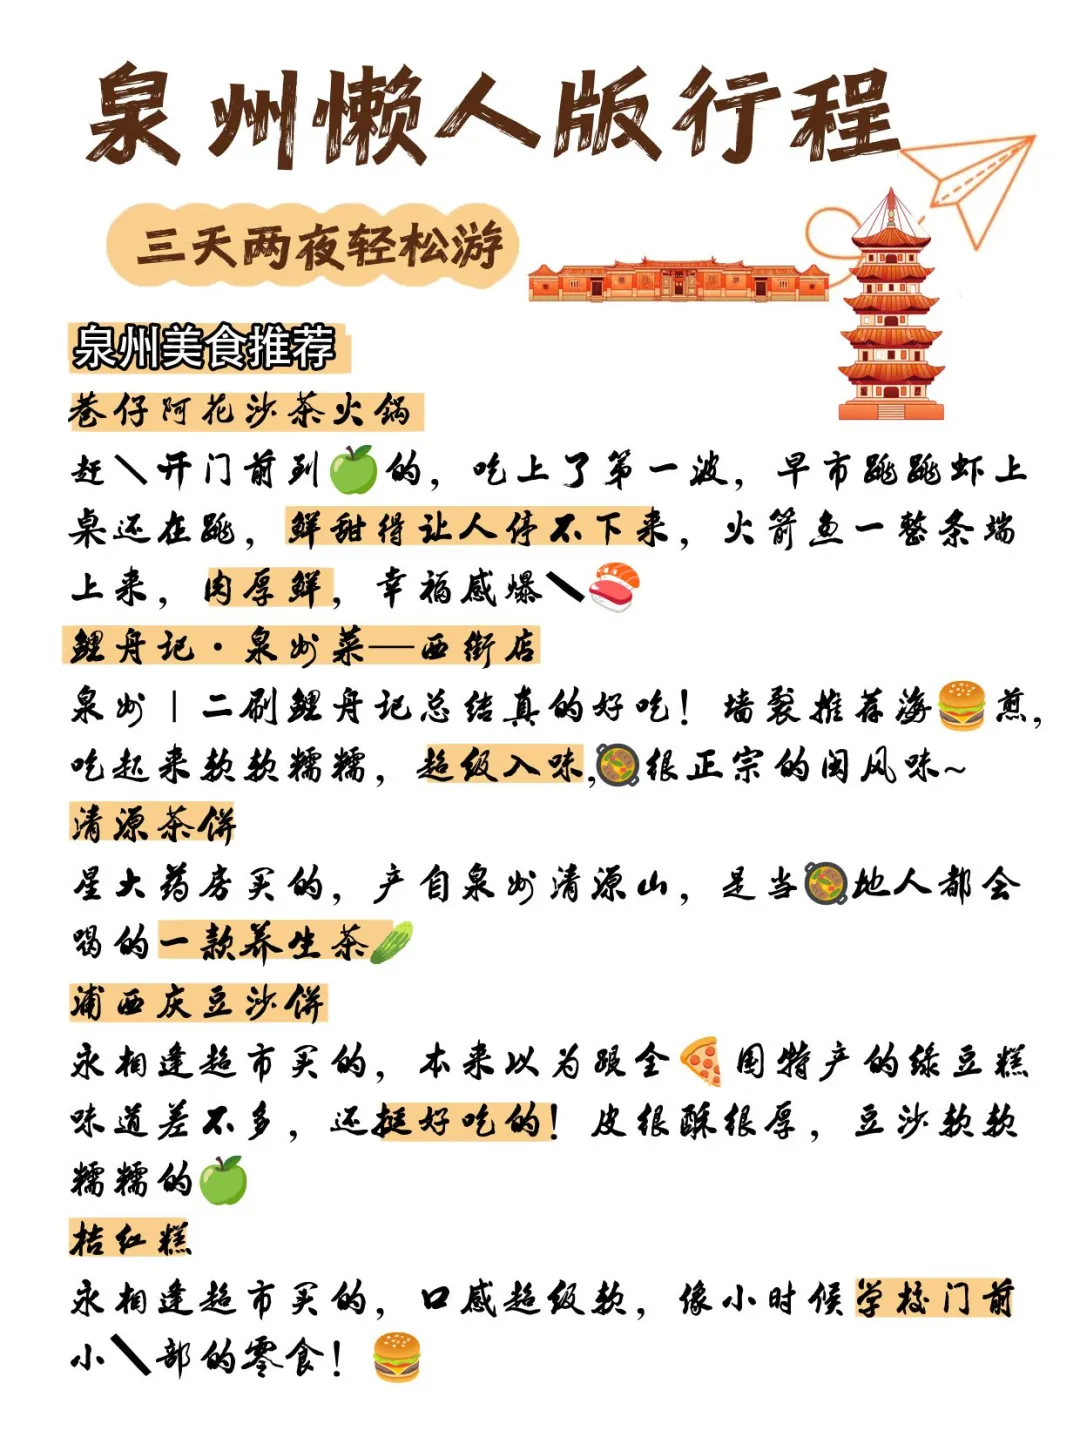 泉州懒人版行程
三天两夜轻松游
泉州美食推荐
巷仔阿花沙茶火锅
赶\开门前到🍏的，吃上了第一波，早市跳跳虾上
桌还在跳，鲜甜得让人停不下来，火箭鱼一整条端
上来，肉厚鲜，幸福感爆\🍣
鲤舟记·泉州菜——西街店
泉州|二刷鲤舟记总结真的好吃！墙裂推荐海🍔煎，
吃起来软软糯糯，超级入味,🥘很正宗的闽风味~
清源茶饼
星大药房买的，产自泉州清源山，是当🥘地人都会
喝的一款养生茶🥒
浦西庆豆沙饼
永相逢超市买的，本来以为跟全🍕国特产的绿豆糕
味道差不多，还挺好吃的！皮很酥很厚，豆沙软软
糯糯的🍏
桔红糕
永相逢超市买的，口感超级软，像小时候学校门前
小\部的零食！🍔